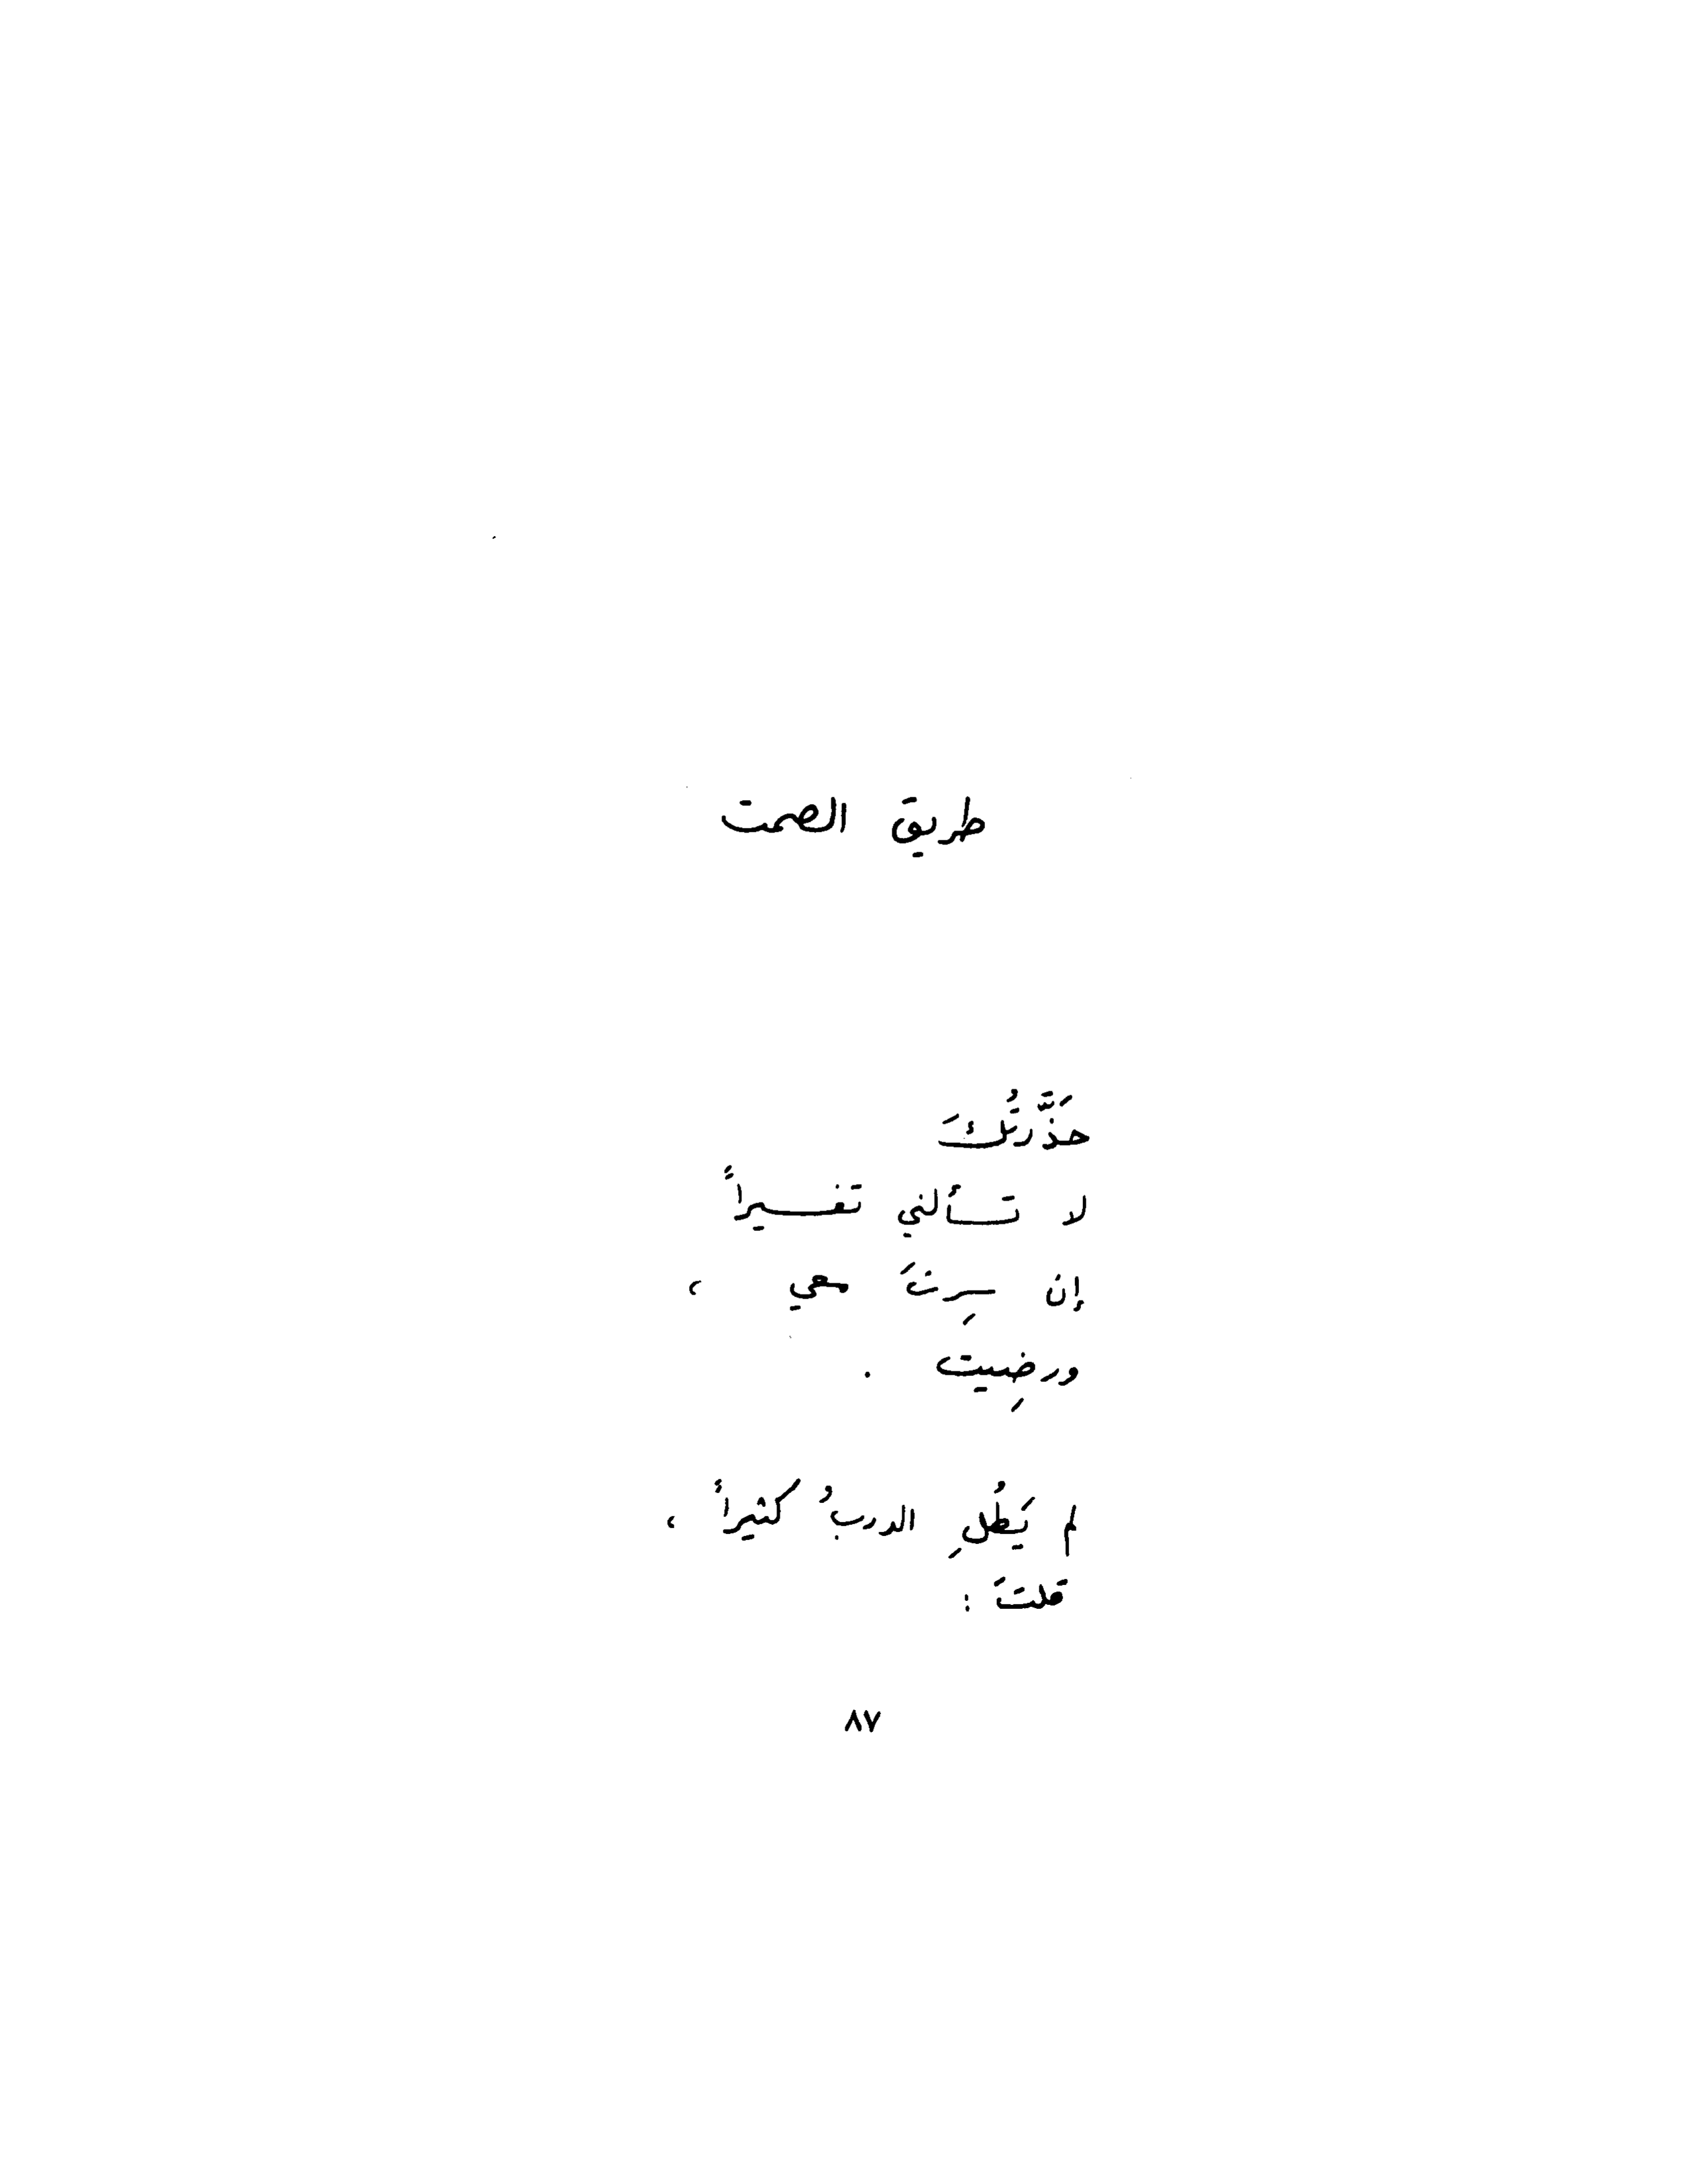 طريق الصمت
حَذَّرتُكَ
لا تسألني تفسيراً
إن سِرتَ معي ،
ورضِيت .
لم يَطُلِ الدربُ كثيراً ،
قلتَ :
٨٧